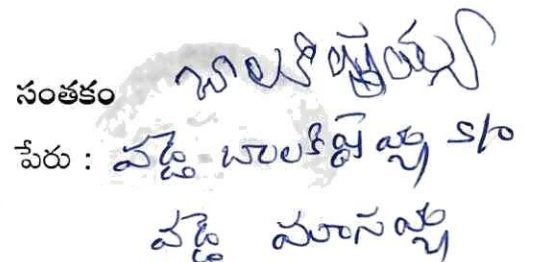 సంతకం బాలకిష్టయ్య
పేరు : వడ్డె బాలకిష్టయ్య S/o
వడ్డె మాసయ్య